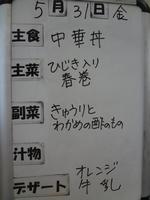 5月31日金
主食 中華丼
主菜 ひじき入り
春巻
副菜 きゅうりと
わかめの酢のもの
汁物
デザート オレンジ
牛乳